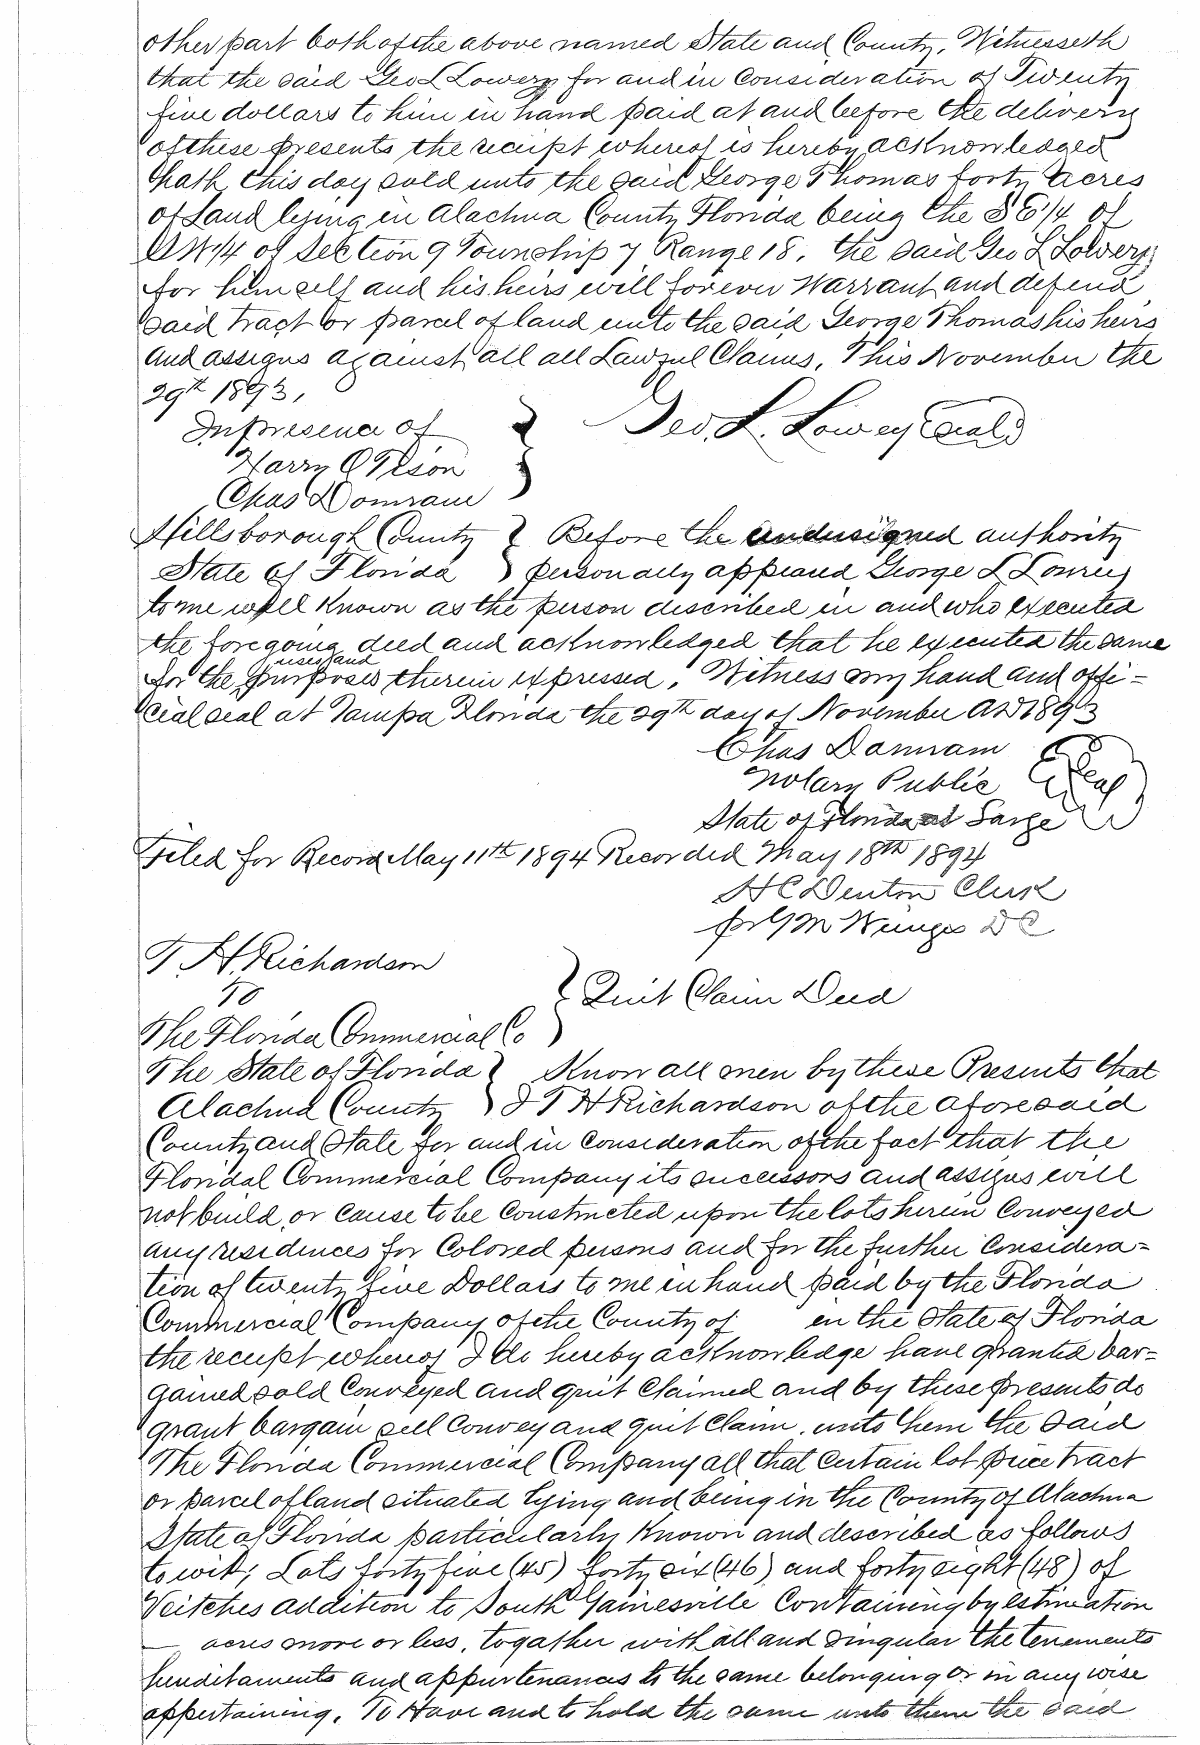 other part both of the above named State and County, Witnesseth
that the said Geo L Lowery for and in Consideration of Twenty
five dollars to him in hand paid at and before the delivery
of these presents the receipt whereof is hereby acknowledged
hath this day sold unto the said George Thomas forty acres
of Land lying in Alachua County Florida being the S E 1/4 of
S W 1/4 of Section 9 Township 7 Range 18. the said Geo L Lowery
for himself and his heirs will forever Warrant and defend
said tract or parcel of land unto the said George Thomas his heirs
and assigns against all all Lawful Claims, This November the
29th 1893,
In presence of } Geo. L. Lowery Seal
Harry O Tison
Chas Damram
Hillsborough County } Before the undersigned authority
State of Florida } personally appeared George L Lowrey
to me well known as the person described in and who executed
the foregoing deed and acknowledged that he executed the same
uses and
for the purposes therein expressed, Witness my hand and offi=
cial seal at Tampa Florida the 29th day of November AD 1893
Chas Damram
Notary Public Seal
State of Florida at Large
Filed for Record May 11th 1894 Recorded May 18th 1894
H C Denton Clerk
pr G M Winges D C
T. H. Richardson
To } Quit Claim Deed
The Florida Commercial Co
The State of Florida } Know all men by these Presents that
Alachua County } I T H Richardson of the aforesaid
County and State for and in Consideration of the fact that the
Floridal Commercial Company its successors and assigns will
not build, or cause to be constructed upon the lots herein Conveyed
any residences for Colored persons and for the further Considera=
tion of twenty five Dollars to me in hand paid by the Florida
Commercial Company of the County of in the State of Florida
the receipt whereof I do hereby acknowledge have granted bar=
gained sold Conveyed and quit Claimed and by these presents do
grant bargain sell Convey and quit Claim, unto them the said
The Florida Commercial Company all that certain lot piece tract
or parcel of land situated lying and being in the County of Alachua
State of Florida particularly Known and described as follows
to wit; Lots forty five (45) forty six (46) and forty eight (48) of
Veitches addition to South Gainesville Containing by estimation
— acres more or less, togather with all and singular the tenements
hereditaments and appurtenances to the same belonging or in any wise
appertaining. To Have and to hold the same unto them the said